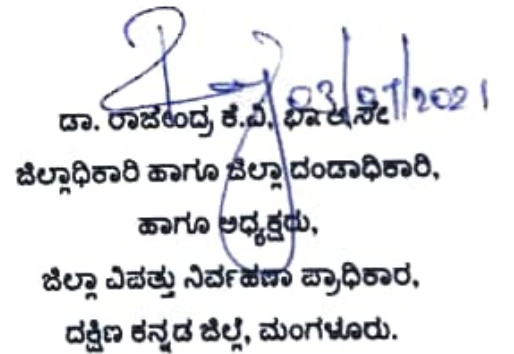 03/07/2021
ಡಾ. ರಾಜೇಂದ್ರ ಕೆ.ವಿ, ಭಾಆಸೇ
ಜಿಲ್ಲಾಧಿಕಾರಿ ಹಾಗೂ ಜಿಲ್ಲಾ ದಂಡಾಧಿಕಾರಿ,
ಹಾಗೂ ಅಧ್ಯಕ್ಷರು,
ಜಿಲ್ಲಾ ವಿಪತ್ತು ನಿರ್ವಹಣಾ ಪ್ರಾಧಿಕಾರ,
ದಕ್ಷಿಣ ಕನ್ನಡ ಜಿಲ್ಲೆ, ಮಂಗಳೂರು.